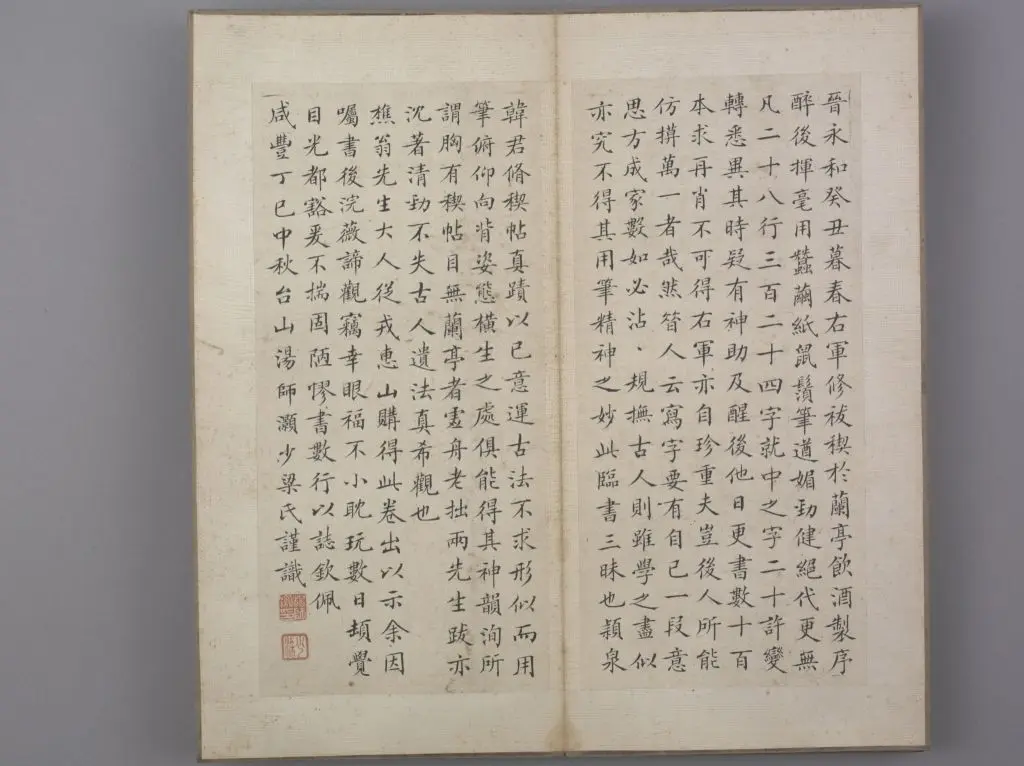 晉永和癸丑暮春右軍修祓禊於蘭亭飲酒製序
醉後揮毫用蠶繭紙鼠鬚筆遒媚勁健絕代更無
凡二十八行三百二十四字就中之字二十許變
轉悉異其時疑有神助及醒後他日更書數十百
本求再肖不可得右軍亦自珍重夫豈後人所能
仿撫萬一者哉然昝人云寫字要有自己一段意
思方成家數如必沾、規撫古人則雖學之盡似
亦究不得其用筆精神之妙此臨書三昧也穎泉
韓君脩稧帖真蹟以已意運古法不求形似而用
筆俯仰向背姿態橫生之處俱能得其神韻洵所
謂胸有稧帖目無蘭亭者虛舟老拙兩先生跋亦
沈著清勁不失古人遺法真希觀也
樵翁先生大人從戎惠山購得此卷出以示余因
囑書後浣薇諦觀竊幸眼福不小耽玩數日頓覺
目光都豁爰不揣固陋悸書數行以誌欽佩
咸豐丁巳中秋台山湯師灝少梁氏謹識